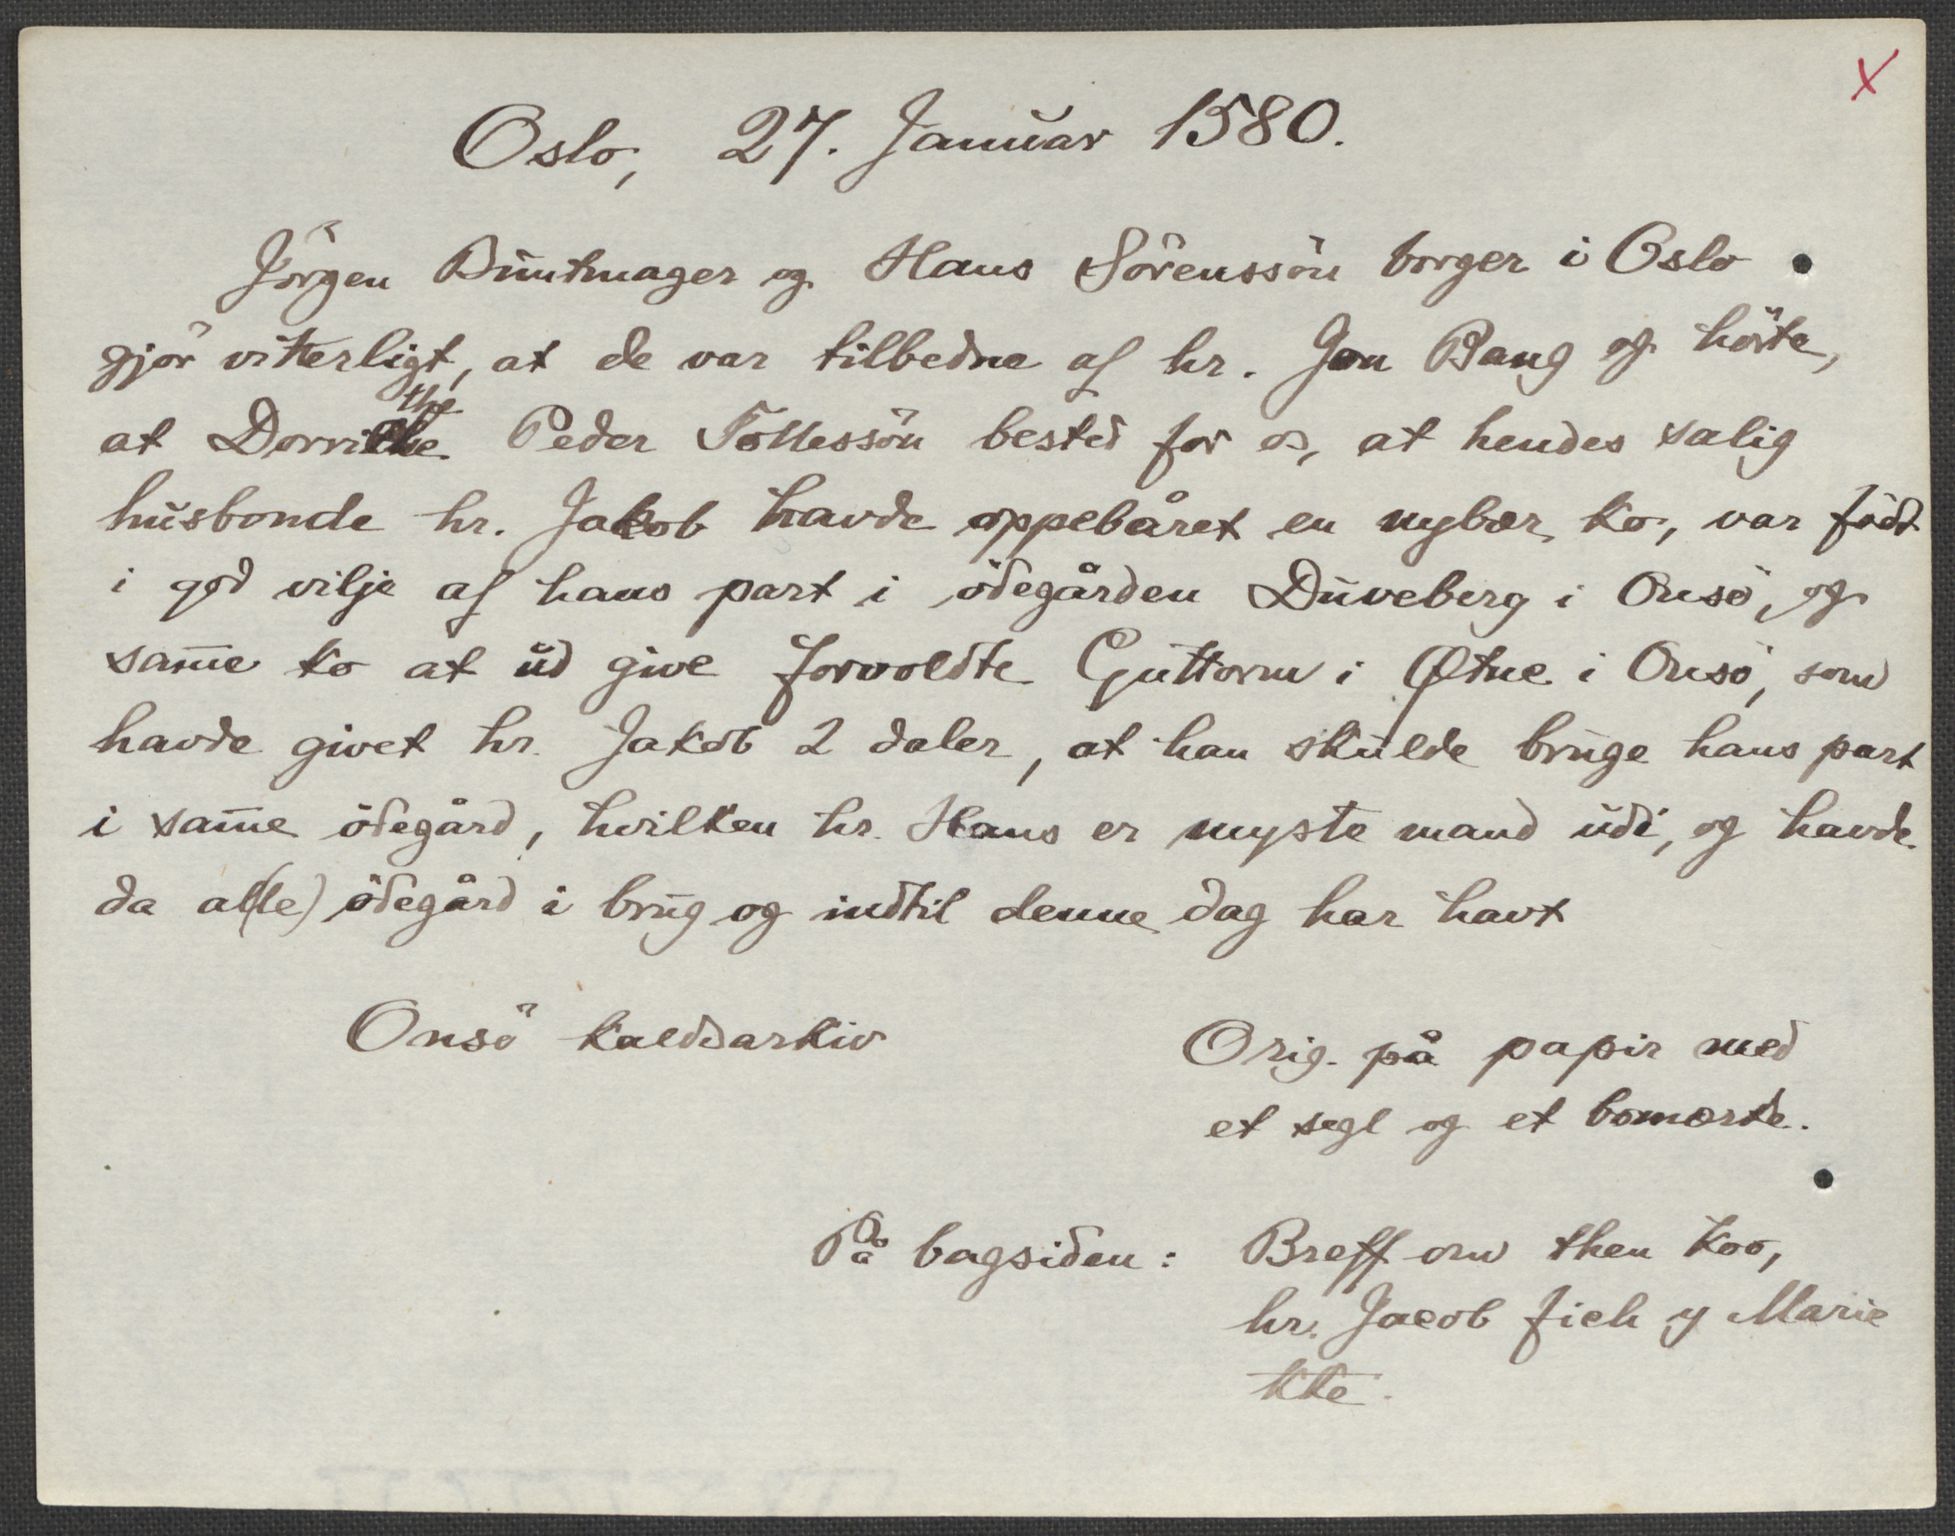 X
Oslo, 27. Januar 1580.
Jörgen Buntmager og Hans Sörenssön borger i Oslo
gjör vitterligt, at de var tilbedne af hr. Jon Bang og hörte,
at Dorrithe Peder Tollessön bested for os, at hendes salig
husbonde hr. Jakob havde oppebåret en nybær ko, var födt
i god vilje af hans part i ödegården Duveberg i Onsö, og
sam̄e ko at ud give forvoldte Guttorm i Øtne i Onsö, som
havde givet hr. Jakob 2 daler, at han skulde bruge hans part
i sam̄e ödegård, hvilken hr. Hans er myste mand udi, og havde
da al(le) ödegård i brug og indtil denne dag har havt
Onsö kaldsarkiv
Orig. på papir med
et segl og et bomærke.
På bagsiden: Breff om then koo,
hr. Jacob fich y Marie
kke.